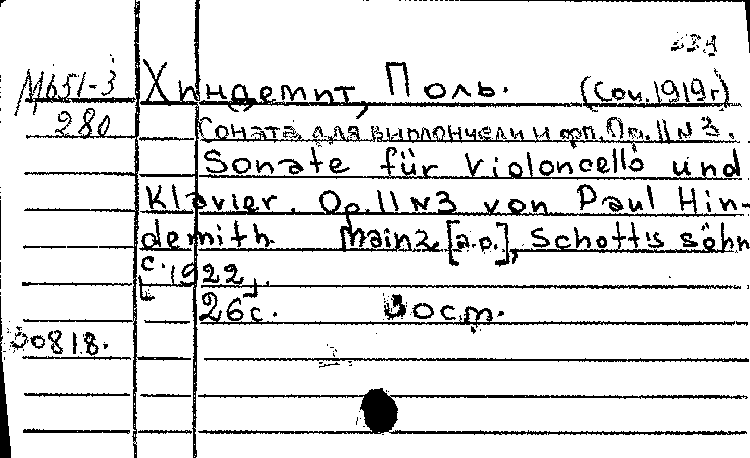 М651-3 Хиндемит, Поль. (Соч. 1919г)
280 Соната для виолончели и фп. Op. 11 N 3.
Sonate für Violoncello und
Klavier. Op. 11 N 3 von Paul Hin-
demith. Mainz, [a.p.], Schott's söhn
[c. 1922].
26c.
30818.